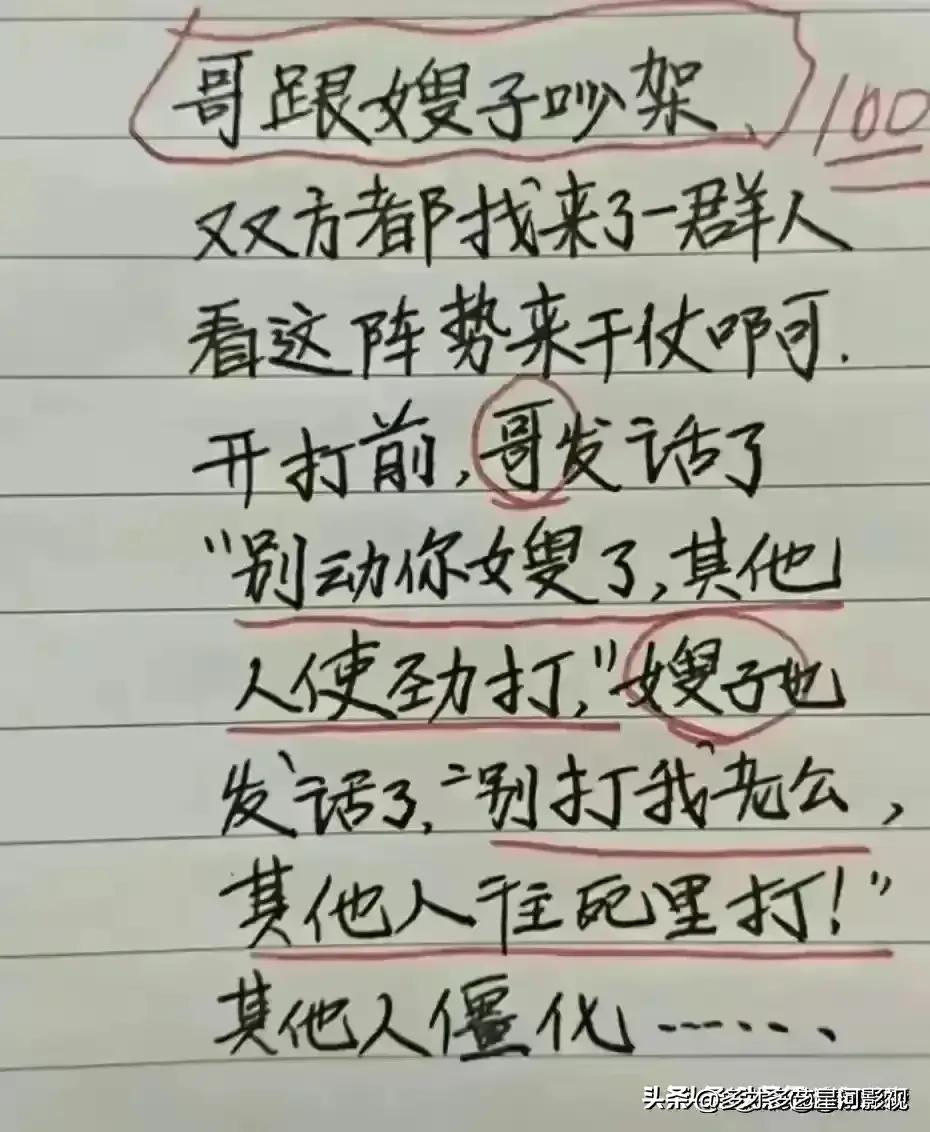 哥跟嫂子吵架、
100
双方都找来了一群人
看这阵势来干仗啊.
开打前,哥发话了
"别动你嫂了,其他
人使劲打,"嫂子也
发话了,"别打我老公,
其他人往死里打!"
其他人僵化……
头条 @多才多艺星河影视